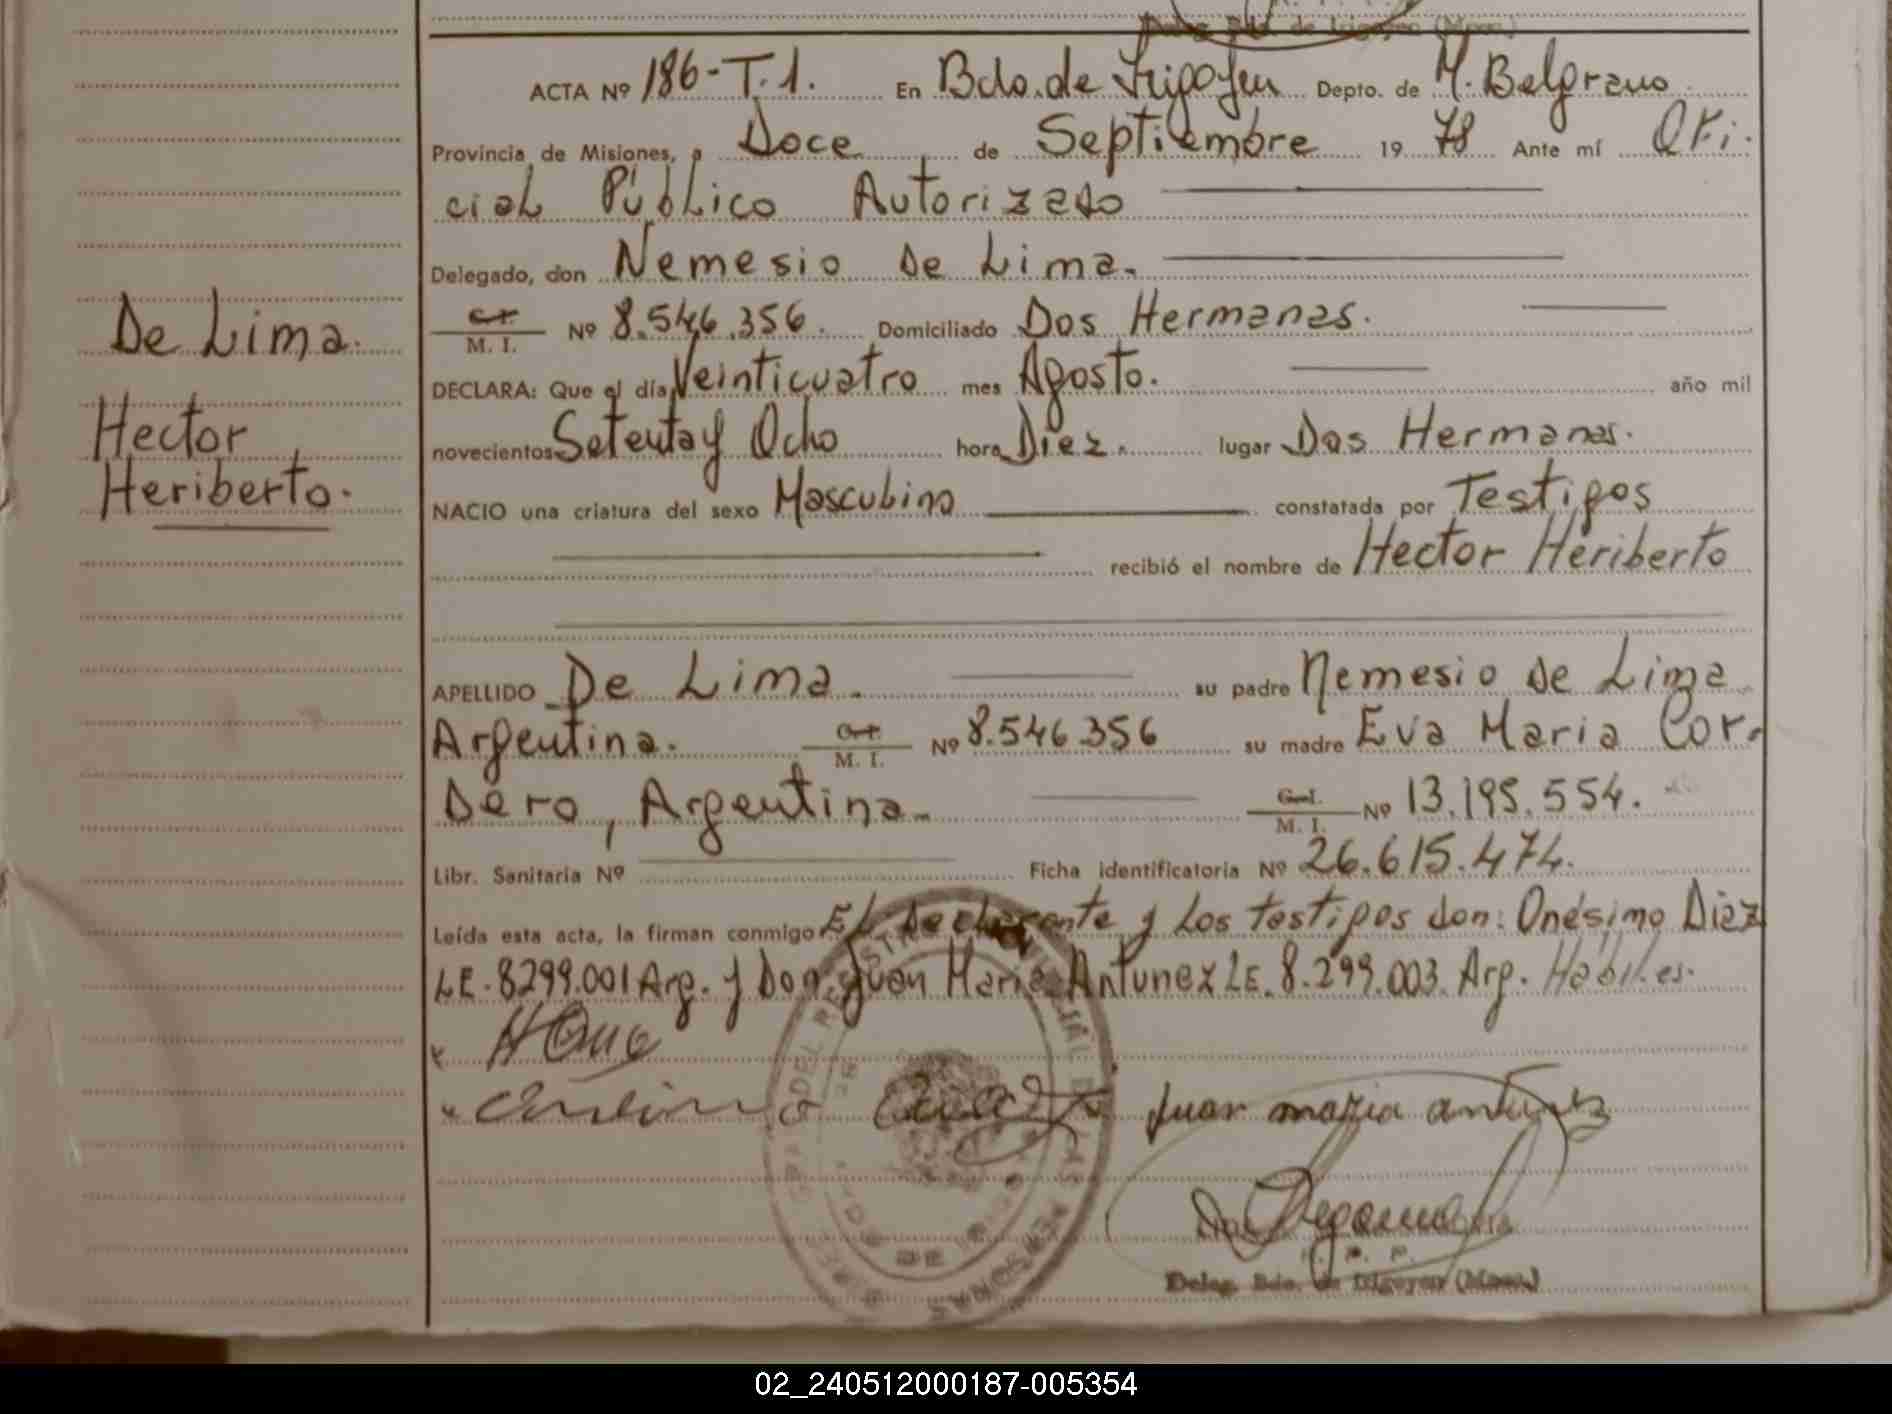 Deleg. Bdo. de Irigoyen (Mnes.)
ACTA Nº 186-T.1. En Bdo. de Irigoyen Depto. de M. Belgrano
Provincia de Misiones, a Doce de Septiembre 19 78 Ante mí Ofi-
cial Público Autorizado
Delegado, don Nemesio De Lima.
C.I.
M. I. Nº 8.546.356. Domiciliado Dos Hermanas.
DECLARA: Que el día Veinticuatro mes Agosto. año mil
novecientos Setenta y Ocho hora Diez. lugar Dos Hermanas.
NACIO una criatura del sexo Masculino constatada por Testigos
recibió el nombre de Hector Heriberto
De Lima.
Hector
Heriberto.
APELLIDO De Lima. su padre Nemesio de Lima
Argentina. C.I. M. I. Nº 8.546.356 su madre Eva Maria Cor-
dero, Argentina. C.I. M. I. Nº 13.195.554.
Libr. Sanitaria Nº Ficha identificatoria Nº 26.615.474.
Leída esta acta, la firman conmigo El declarante y los testigos don: Onésimo Diez
LE. 8299.001 Arg. y Don Juan Maria Antunez LE. 8.299.003. Arg. Hábiles.
Juan maria antunez
Deleg. Bdo. de Irigoyen (Mnes.)
02_240512000187-005354